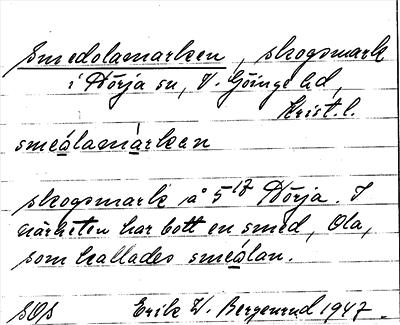 Smedolamarken, skogsmark
i Nörja sn, V. Göinge hd,
Krist. l.
smeálamárken
skogsmark å 5¹⁷ Nörja. I
närheten har bott en smed, Ola,
som kallades smeálan.
SOS Erik W. Bergenrud 1947.